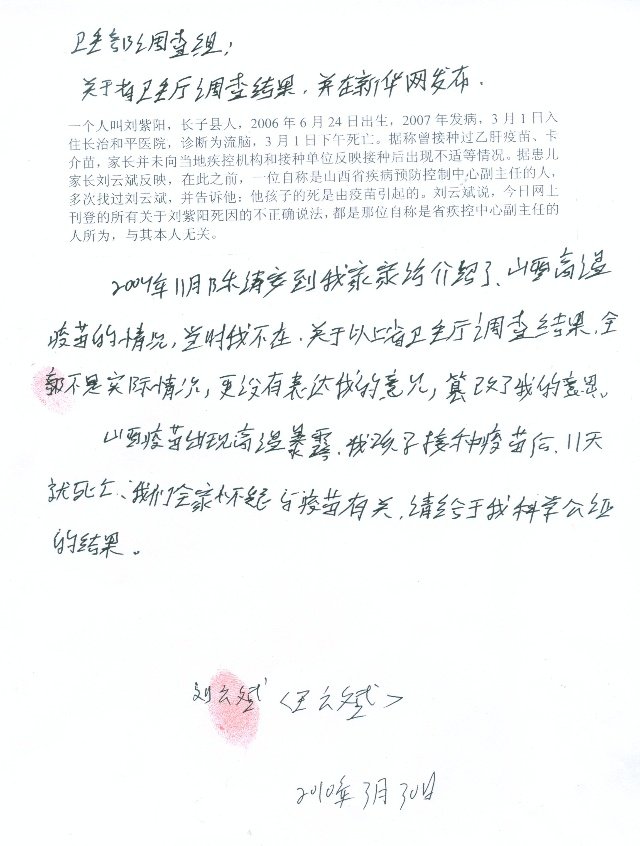 卫生部调查组：
关于省卫生厅调查结果，并在新华网发布.
一个人叫刘紫阳，长子县人，2006 年 6 月 24 日出生，2007 年发病，3 月 1 日入
住长治和平医院，诊断为流脑，3 月 1 日下午死亡。据称曾接种过乙肝疫苗、卡
介苗，家长并未向当地疾控机构和接种单位反映接种后出现不适等情况。据患儿
家长刘云斌反映，在此之前，一位自称是山西省疾病预防控制中心副主任的人，
多次找过刘云斌，并告诉他：他孩子的死是由疫苗引起的。刘云斌说，今日网上
刊登的所有关于刘紫阳死因的不正确说法，都是那位自称是省疾控中心副主任的
人所为，与其本人无关。
年11月陈涛安到我家介绍了、山西高温
疫苗的情况，当时我不在．关于以上省卫生厅调查结果，全
部不是实际情况，更没有表达我的意见，篡改了我的意思。
山西疫苗出现高温暴露．我孩子接种疫苗后、11天
就死亡、我们全家怀疑与疫苗有关．请给于我科学公正
的结果。
刘云斌〈王云斌〉
2010年3月30日